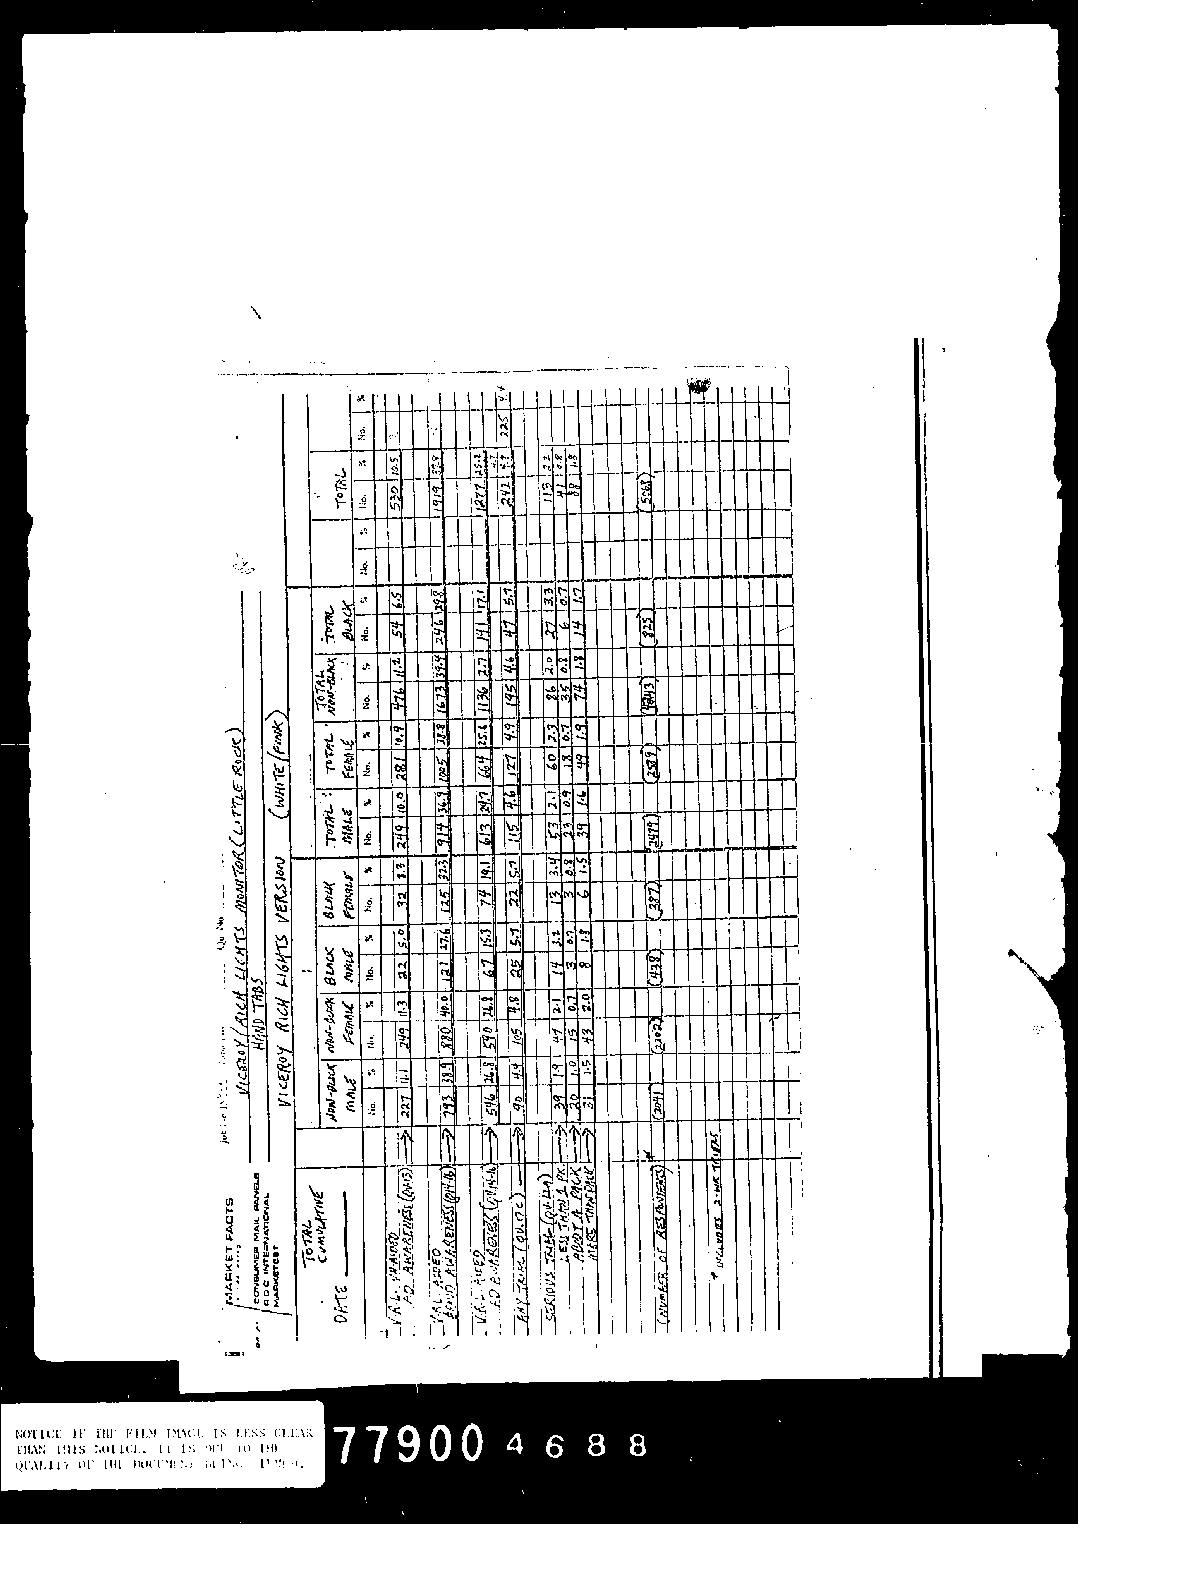 MARKET FACTS
CONSUMER MAIL PANELS
RDC INTERNATIONAL
MARKETEST
VICEROY/RICH LIGHTS MONITOR (LITTLE ROCK)
HAND TABS
VICEROY RICH LIGHTS VERSION (WHITE/PINK)
TOTAL CUMULATIVE
DATE
NON-BLACK MALE NON-BLACK FEMALE BLACK MALE BLACK FEMALE TOTAL MALE TOTAL FEMALE TOTAL NON-BLACK TOTAL BLACK TOTAL
No. % No. % No. % No. % No. % No. % No. % No. % No. % No. % No. %
V.R.L. UNAIDED
AD AWARENESS (QU 13) → 227 11.1 249 11.3 22 5.0 32 8.3 249 10.0 281 10.9 476 11.2 54 6.5 530 10.5
V.R.L. AIDED
BRAND AWARENESS (Q14-16) → 793 38.9 880 40.0 121 27.6 125 32.3 914 36.9 1005 38.8 1673 39.4 246 29.8 1919 37.9
V.R.L. AIDED
AD AWARENESS (QU 14-16) → 546 26.8 590 26.8 67 15.3 74 19.1 613 24.7 664 25.6 1136 2.7 141 17.1 1277 25.2
ANY TRIAL (QU. 17C) → 90 4.4 105 4.8 25 5.7 22 5.7 115 4.6 127 4.9 195 4.6 47 5.7 242 4.7 225 4.4
SERIOUS TRIAL (QU. 17A)
LESS THAN A PK → 39 1.9 47 2.1 14 3.2 13 3.4 53 2.1 60 2.3 86 2.0 27 3.3 113 2.2
ABOUT A PACK → 20 1.0 15 0.7 3 0.7 3 0.8 23 0.9 18 0.7 35 0.8 6 0.7 41 0.8
MORE THAN PACK → 31 1.5 43 2.0 8 1.8 6 1.5 39 1.6 49 1.9 74 1.8 14 1.7 88 1.8
(NUMBER OF RESPONDERS) (2041) (2202) (438) (387) (2479) (2589) (4243) (825) (5068)
* INCLUDES 2-WK TRIERS
NOTICE IF THE FILM IMAGE IS LESS CLEAR
THAN THIS NOTICE, IT IS DUE TO THE
QUALITY OF THE DOCUMENT BEING FILMED.
77900 4688